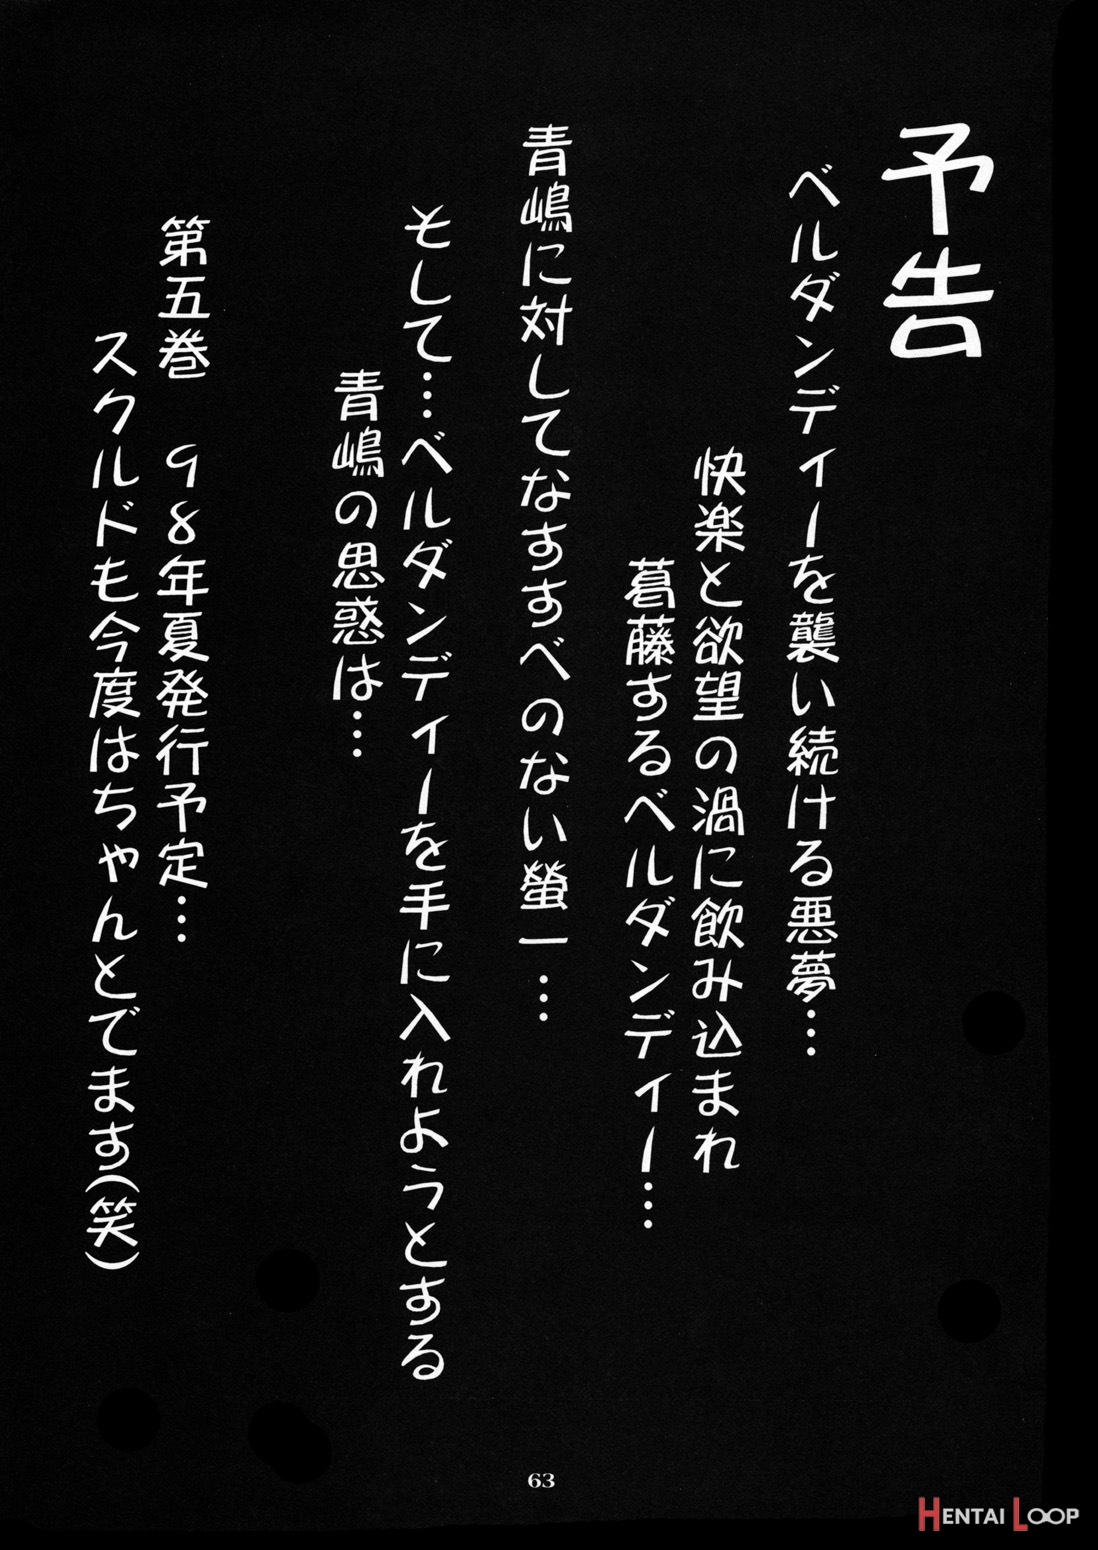 予告
ベルダンディーを襲い続ける悪夢…
快楽と欲望の渦に飲み込まれ
葛藤するベルダンディー…
青嶋に対してなすすべのない螢一…
そして…ベルダンディーを手に入れようとする
青嶋の思惑は…
第五巻　98年夏発行予定…
スクルドも今度はちゃんとでます(笑)
63
HENTAI LOOP